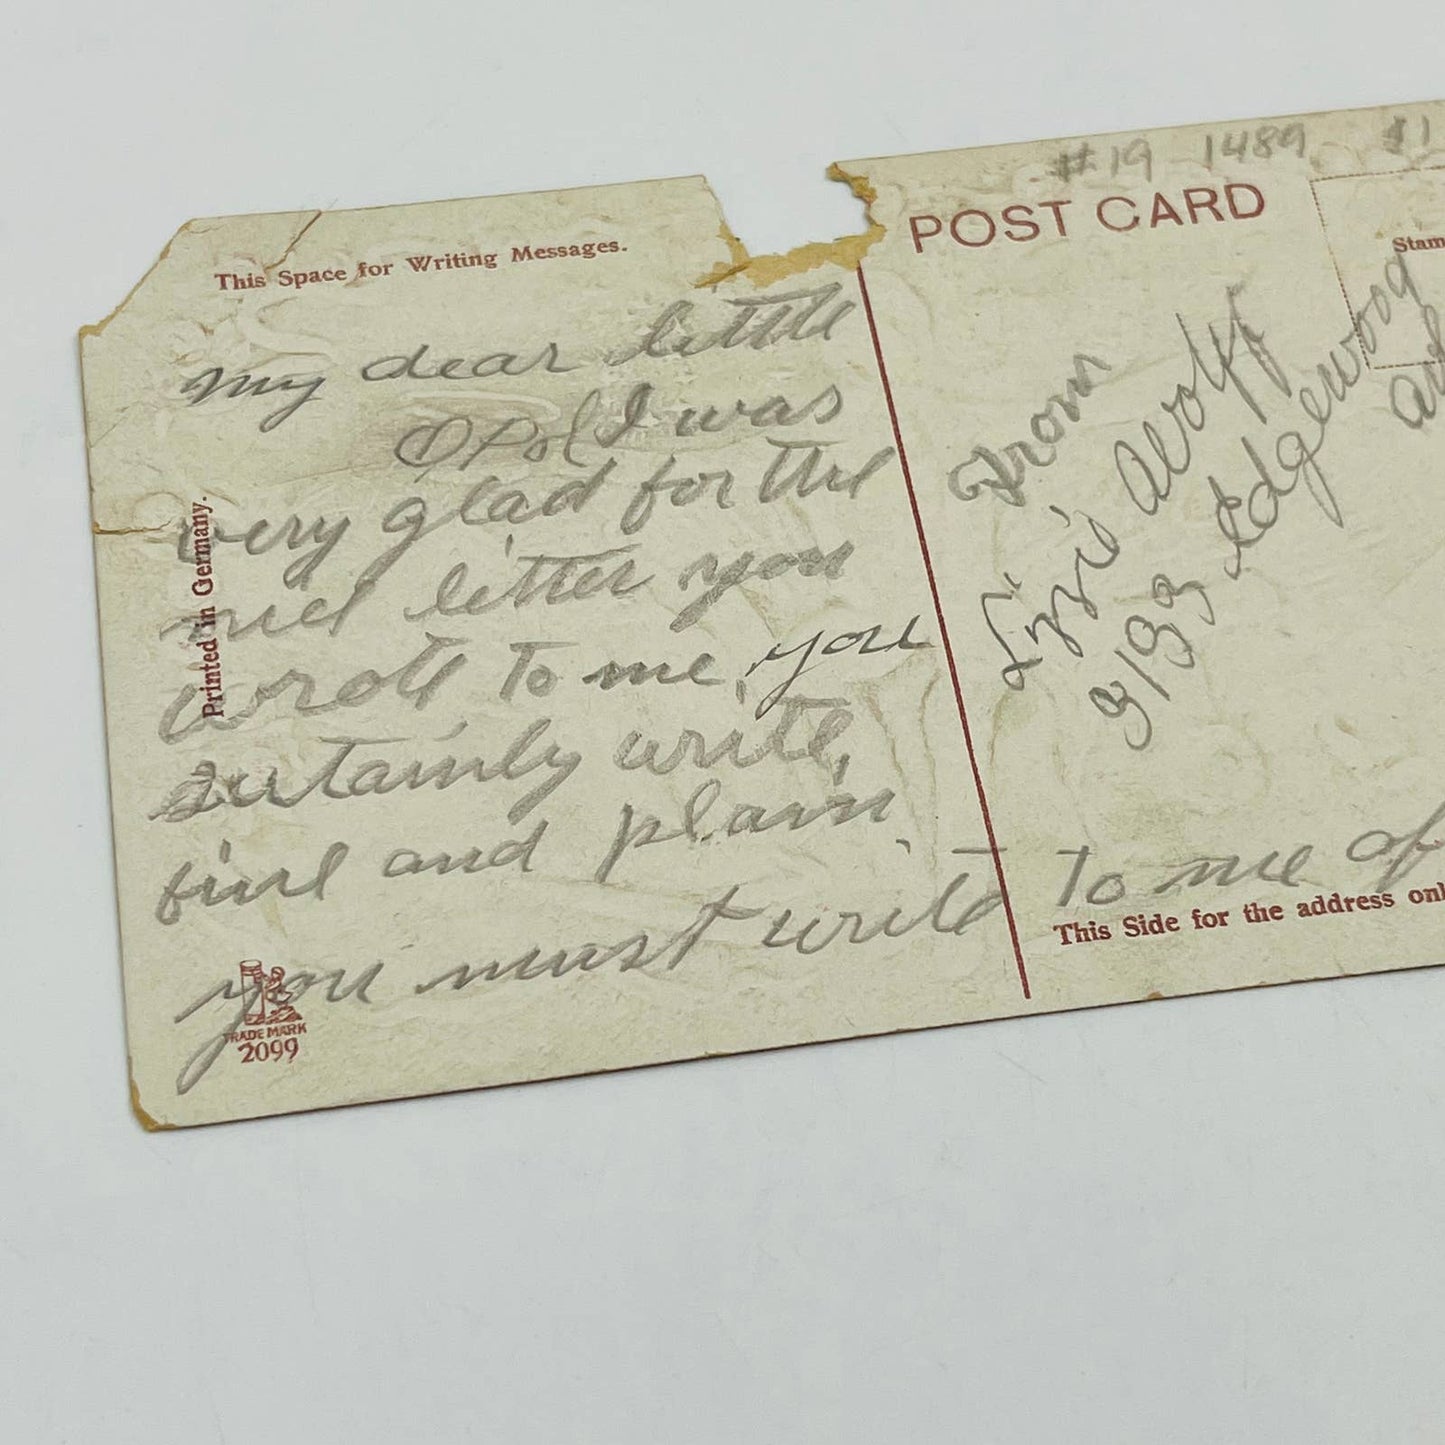 #19 1489 $1
POST CARD
This Space for Writing Messages.
Stam
My dear little
Opol I was
very glad for the
nice letter you
wrote to me, you
sertainly write,
fine and plain
you must write to me of
From
Lizzie Wolff
3133 Edgewood
Printed in Germany.
TRADE MARK
2099
This Side for the address onl